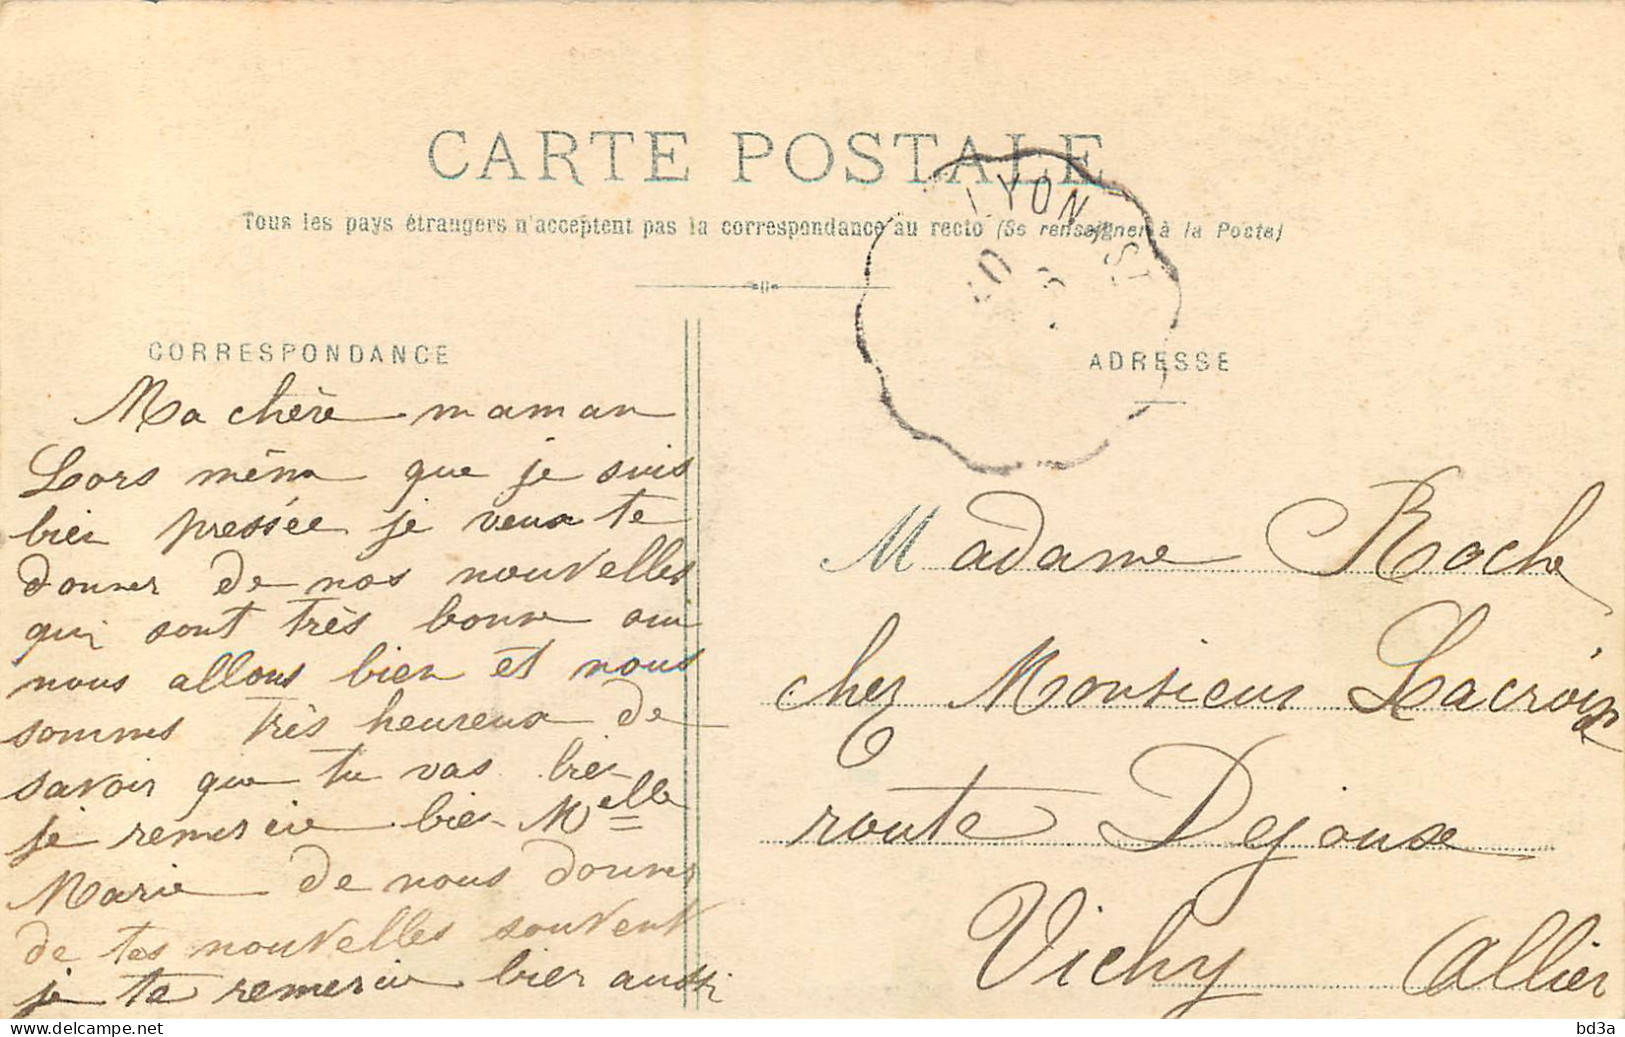 CARTE POSTALE
Tous les pays étrangers n'acceptent pas la correspondance au recto (Se renseigner à la Poste)
LYON
ST
CORRESPONDANCE
ADRESSE
Ma chère maman
Lors mêm que je suis
bien pressée je veux te
donner de nos nouvelles
qui sont très bonne
nous allons bien et nous
sommes très heureux de
savoir que tu vas bien
je remercie bien Melle
Marie de nous donner
de tes nouvelles souvent
je te remercie bien aussi
Madame Roche
chez Monsieur Lacroix
route Dejoux
Vichy Allier
delcampe.net
bd3a